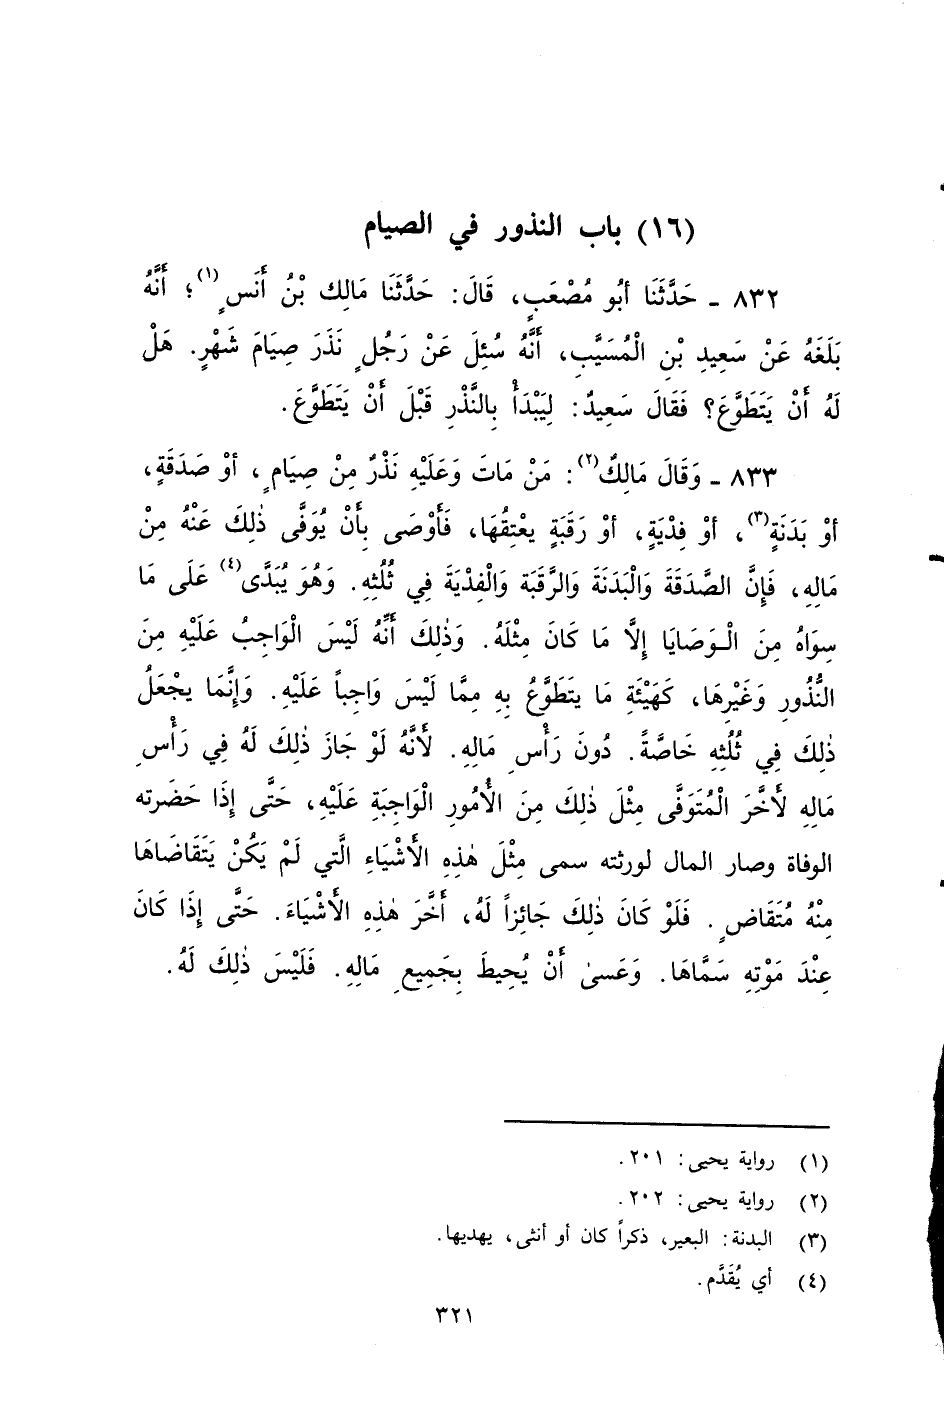 (١٦) باب النذور في الصيام
٨٣٢ ـ حَدَّثَنَا أبُو مُصْعَبٍ، قَالَ: حَدَّثَنَا مَالِك بْنُ أَنَسٍ(١)؛ أَنَّهُ
بَلَغَهُ عَنْ سَعِيدِ بْنِ الْمُسَيَّبِ، أَنَّهُ سُئِلَ عَنْ رَجُلٍ نَذَرَ صِيَامَ شَهْرٍ. هَلْ
لَهُ أَنْ يَتَطَوَّعَ؟ فَقَالَ سَعِيدٌ: لِيَبْدَأْ بِالنَّذْرِ قَبْلَ أَنْ يَتَطَوَّعَ.
٨٣٣ ـ وَقَالَ مَالِكٌ(٢): مَنْ مَاتَ وَعَلَيْهِ نَذْرٌ مِنْ صِيَامٍ، أوْ صَدَقَةٍ،
أوْ بَدَنَةٍ(٣)، أوْ فِدْيَةٍ، أوْ رَقَبَةٍ يعْتِقُهَا، فَأَوْصَى بِأَنْ يُوَفَّى ذٰلِكَ عَنْهُ مِنْ
مَالِهِ، فَإِنَّ الصَّدَقَةَ وَالْبَدَنَةَ وَالرَّقَبَةَ وَالْفِدْيَةَ فِي ثُلُثِهِ. وَهُوَ يُبَدَّى(٤) عَلَى مَا
سِوَاهُ مِنَ الْـوَصَايَا إِلَّا مَا كَانَ مِثْلَهُ. وَذٰلِكَ أَنَّهُ لَيْسَ الْوَاجِبُ عَلَيْهِ مِنَ
النُّذُورِ وَغَيْرِهَا، كَهَيْئَةِ مَا يَتَطَوَّعُ بِهِ مِمَّا لَيْسَ وَاجِباً عَلَيْهِ. وَإِنَّمَا يجْعَلُ
ذٰلِكَ فِي ثُلُثِهِ خَاصَّةً. دُونَ رَأْسِ مَالِهِ. لَأَنَّهُ لَوْ جَازَ ذٰلِكَ لَهُ فِي رَأْسِ
مَالِهِ لَأَخَّرَ الْمُتَوَفَّى مِثْلَ ذٰلِكَ مِنَ الْأُمُورِ الْوَاجِبَةِ عَلَيْهِ، حَتَّى إِذَا حَضَرته
الوفاة وصار المال لورثته سمى مِثْلَ هٰذِهِ الْأَشْيَاءِ الَّتي لَمْ يَكُنْ يَتَقَاضَاهَا
مِنْهُ مُتَقَاضٍ. فَلَوْ كَانَ ذٰلِكَ جَائِزاً لَهُ، أَخَّرَ هٰذِهِ الأَشْيَاءَ. حَتَّى إِذَا كَانَ
عِنْدَ مَوْتِهِ سَمَّاهَا. وَعَسىٰ أَنْ يُحِيطَ بِجَمِيعِ مَالِهِ. فَلَيْسَ ذٰلِكَ لَهُ.
(١) رواية يحيى: ٢٠١.
(٢) رواية يحيى: ٢٠٢.
(٣) البدنة: البعير، ذكراً كان أو أنثى، يهديها.
(٤) أي يُقَدَّم.
٣٢١